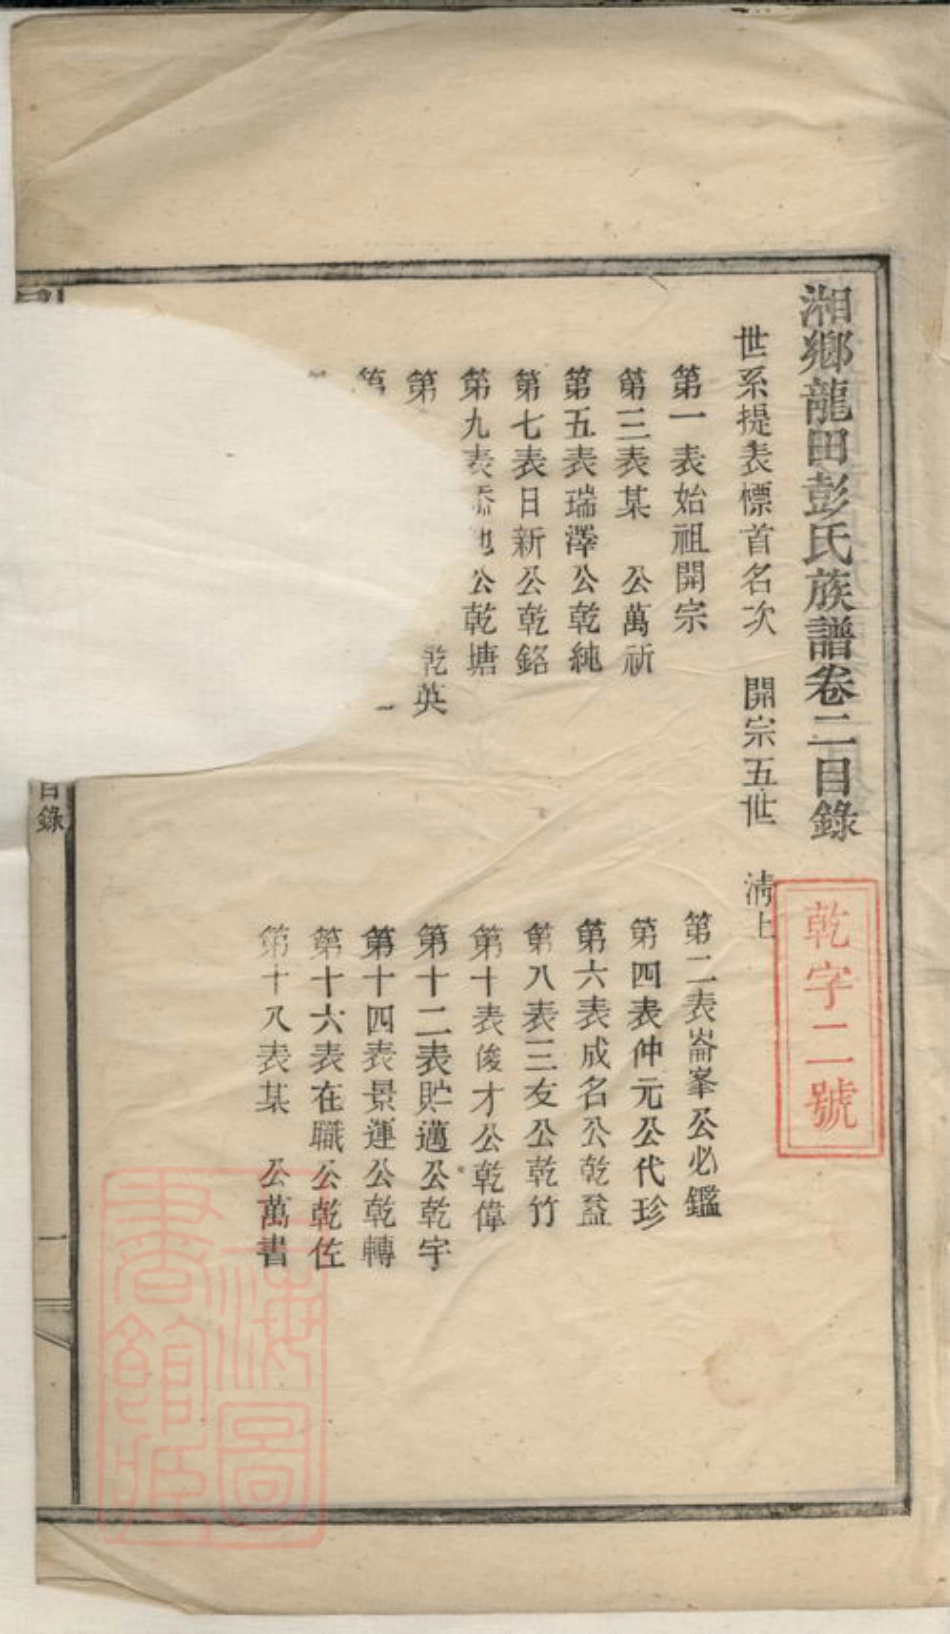 湘鄉龍田彭氏族譜卷二目錄
乾字二號
世系提表標首名次　開宗五世　清上
第一表始祖開宗
第二表嵛峯公必鑑
第三表某　公萬祈
第四表仲元公代珍
第五表瑞澤公乾純
第六表成名公乾益
第七表日新公乾銘
第八表三友公乾竹
第九表　公乾塘
第十表俊才公乾偉
第　乾英
第十二表貯邁公乾宇
第
第十四表景運公乾轉
第十六表在職公乾佐
第十八表某　公萬書
目錄
一
上海圖書館藏